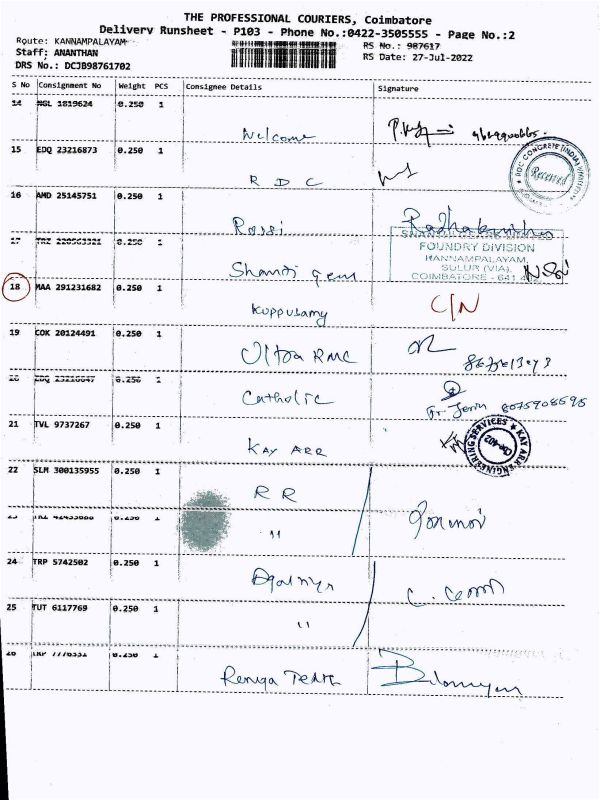 THE PROFESSIONAL COURIERS, Coimbatore
Delivery Runsheet - P103 - Phone No.:0422-3505555 - Page No.:2
Route: KANNAMPALAYAM
RS No.: 987617
Staff: ANANTHAN
RS Date: 27-Jul-2022
DRS No.: DCJB98761702
S No Consignment No Weight PCS Consignee Details Signature
14 NGL 1819624 0.250 1
Welcome
15 EDQ 23216873 0.250 1
RDC
RDC CONCRETE (INDIA)
Received
16 AMD 25145751 0.250 1
Rossi Radhakrishn
17 0.250 1
FOUNDRY DIVISION
KANNAMPALAYAM,
SULUR (VIA),
COIMBATORE - 641
Shanti Gear
18 MAA 291231682 0.250 1
Kuppusamy C/N
19 COK 20124491 0.250 1
Ultra RMC
20 EDQ 0.250 1
Catholic
Fr. 8075908595
21 TVL 9737267 0.250 1
KAY ARR
KAY ARR ENGINEERING SERVICES
Cbe-402
22 SLM 300135955 0.250 1
RR
23 0.250 1
"
24 TRP 5742502 0.250 1
25 TUT 6117769 0.250 1
"
26 0.250 1
Renga Tech